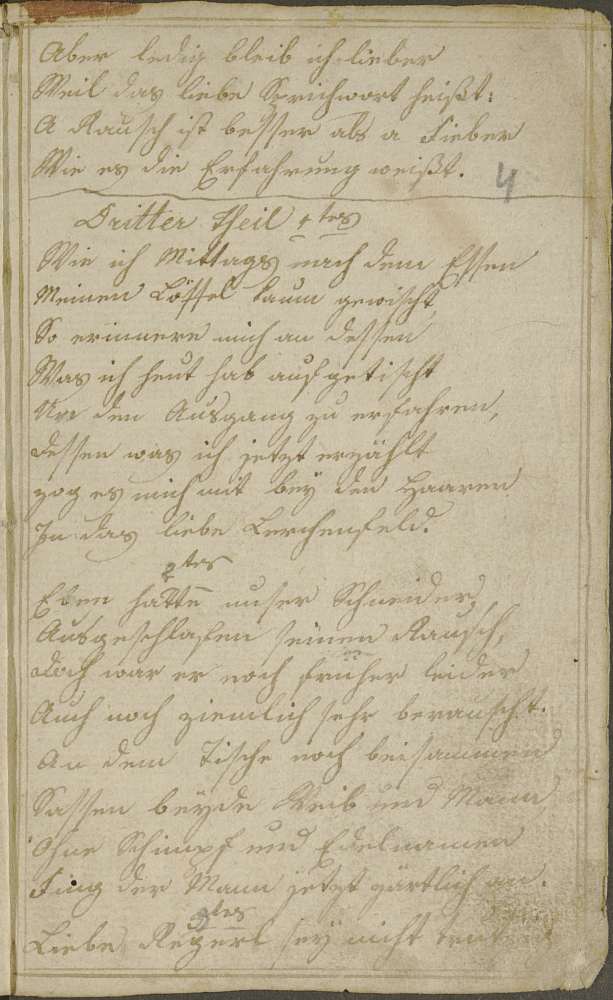 Aber ledig bleib ich lieber
Weil das liebe Sprichwort heißt:
A Rausch ist besser als a Fieber
Wie es die Erfahrung weißt.
4
Dritter Theil 1tes
Wie ich Mittags nach dem Essen
Meinen Löffel kaum gewischt
So erinnere mich an dessen
Was ich heut hab aufgetischt
Um den Ausgang zu erfahren,
dessen was ich jetzt erzählt
zog es mich mit bey den Haaren
In das liebe Lerchenfeld.
2tes
Eben hatte unser Schneider
Ausgeschlafen seinen Rausch,
doch war er noch früher leider
Auch noch ziemlich sehr berauscht.
An dem Tische noch beisammen
Sassen beyde Weib und Mann
Ohne Schimpf und Edelnamen
Fing der Mann jetzt zärtlich an.
3tes
Liebe Regerl sey nicht